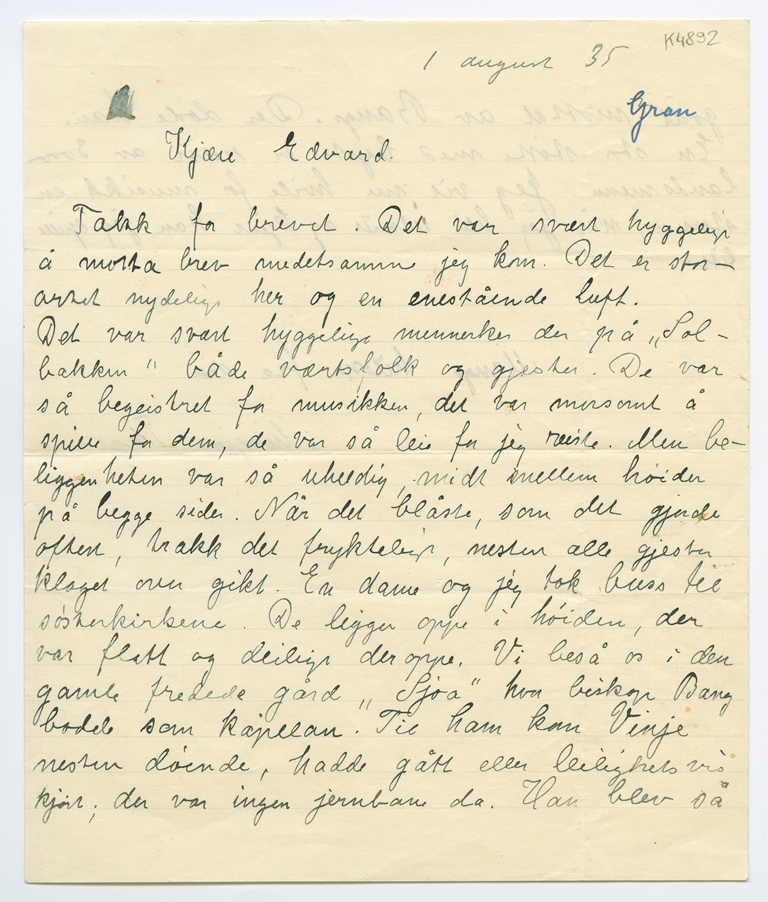 K4892
1 august 35
Gran
Kjære Edvard.
Takk for brevet. Det var svært hyggelig
å motta brev medetsamme jeg kom. Det er stor-
artet nydelig her og en enestående luft.
Det var svært hyggelige mennesker der på "Sol-
bakken" både vertsfolk og gjester. De var
så begeistret for musikken, det var morsomt å
spille for dem, de var så leie for jeg reiste. Men be-
liggenheten var så uheldig, midt mellem höider
på begge sider. Når det blåste, som det gjorde
oftest, trakk det frykteligt, nesten alle gjester
klaget over gikt. En dame og jeg tok buss til
sösterkirkene. De ligger oppe i höiden, der
var flatt og deiligt der oppe. Vi beså os i den
gamle fredede gård "Sjoa" hvor biskop Bang
bodde som kapellan. Til ham kom Vinje
nesten döende, hadde gått eller leilighetsvis
kjört, der var ingen jernbane da. Han blev så